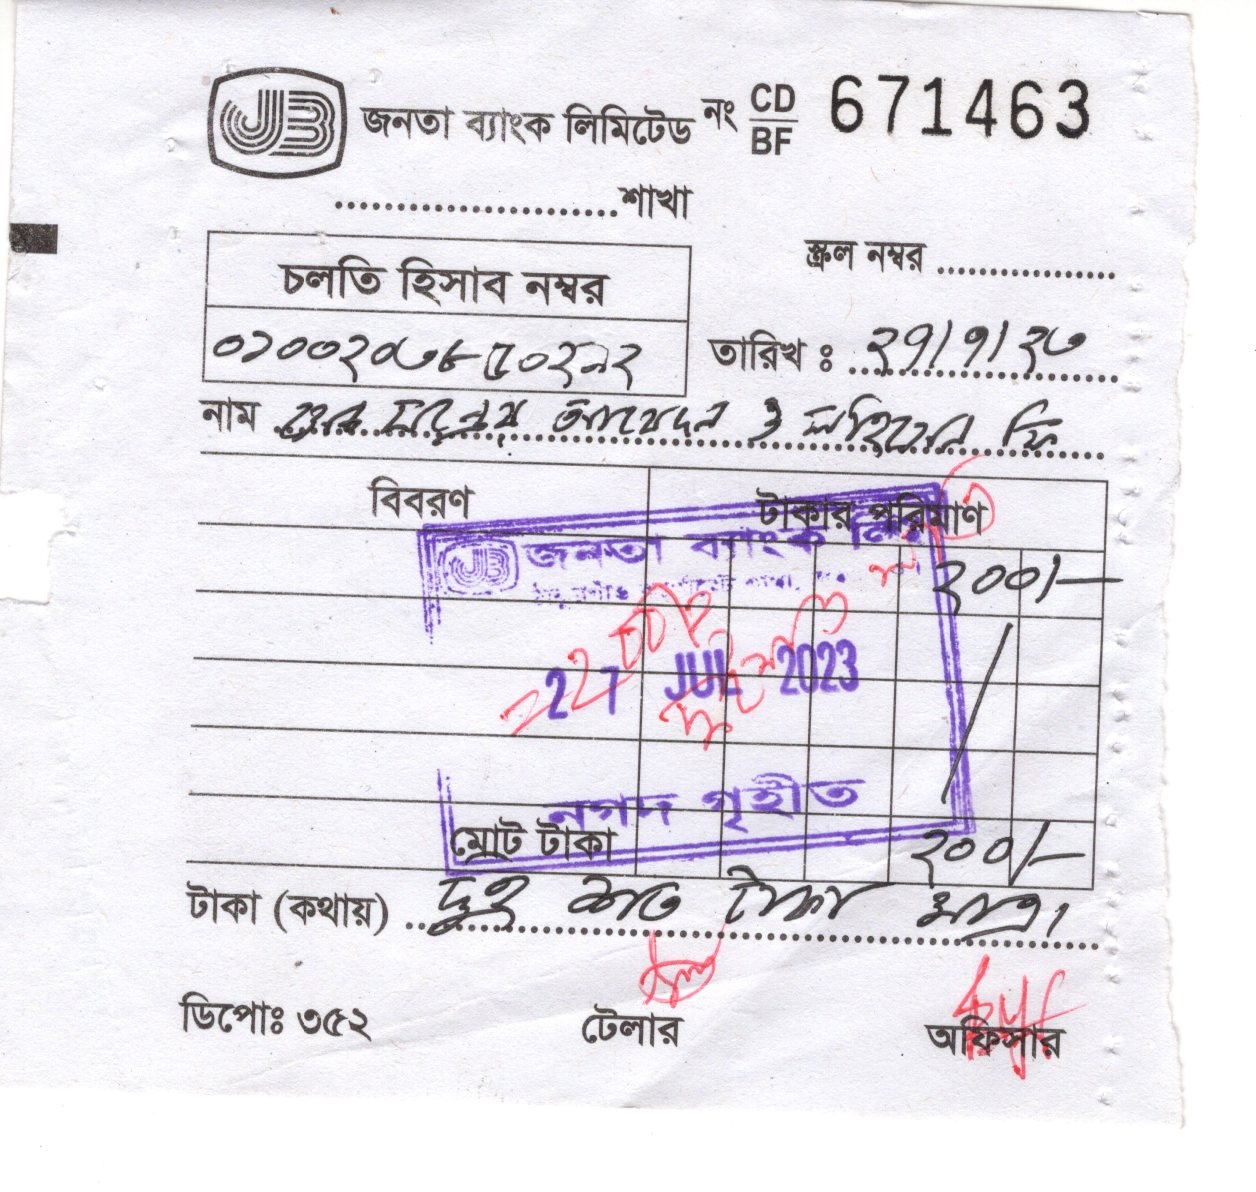 JB জনতা ব্যাংক লিমিটেড নং CD/BF 671463
....................শাখা
স্ক্রল নম্বর ....................
চলতি হিসাব নম্বর
তারিখ : ২৭/৭/২৩
নাম আবেদন ও ফি
বিবরণ টাকার পরিমাণ
JB জনতা ব্যাংক লিঃ
২০০/-
27 JUL 2023
নগদ গৃহীত
মোট টাকা ২০০/-
টাকা (কথায়) দুই শত টাকা মাত্র।
ডিপোঃ ৩৫২ টেলার অফিসার